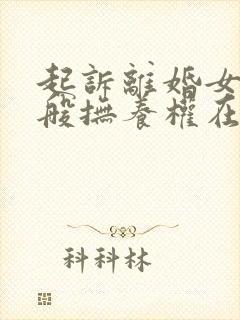 起訴離婚女
般撫養權在
科科林